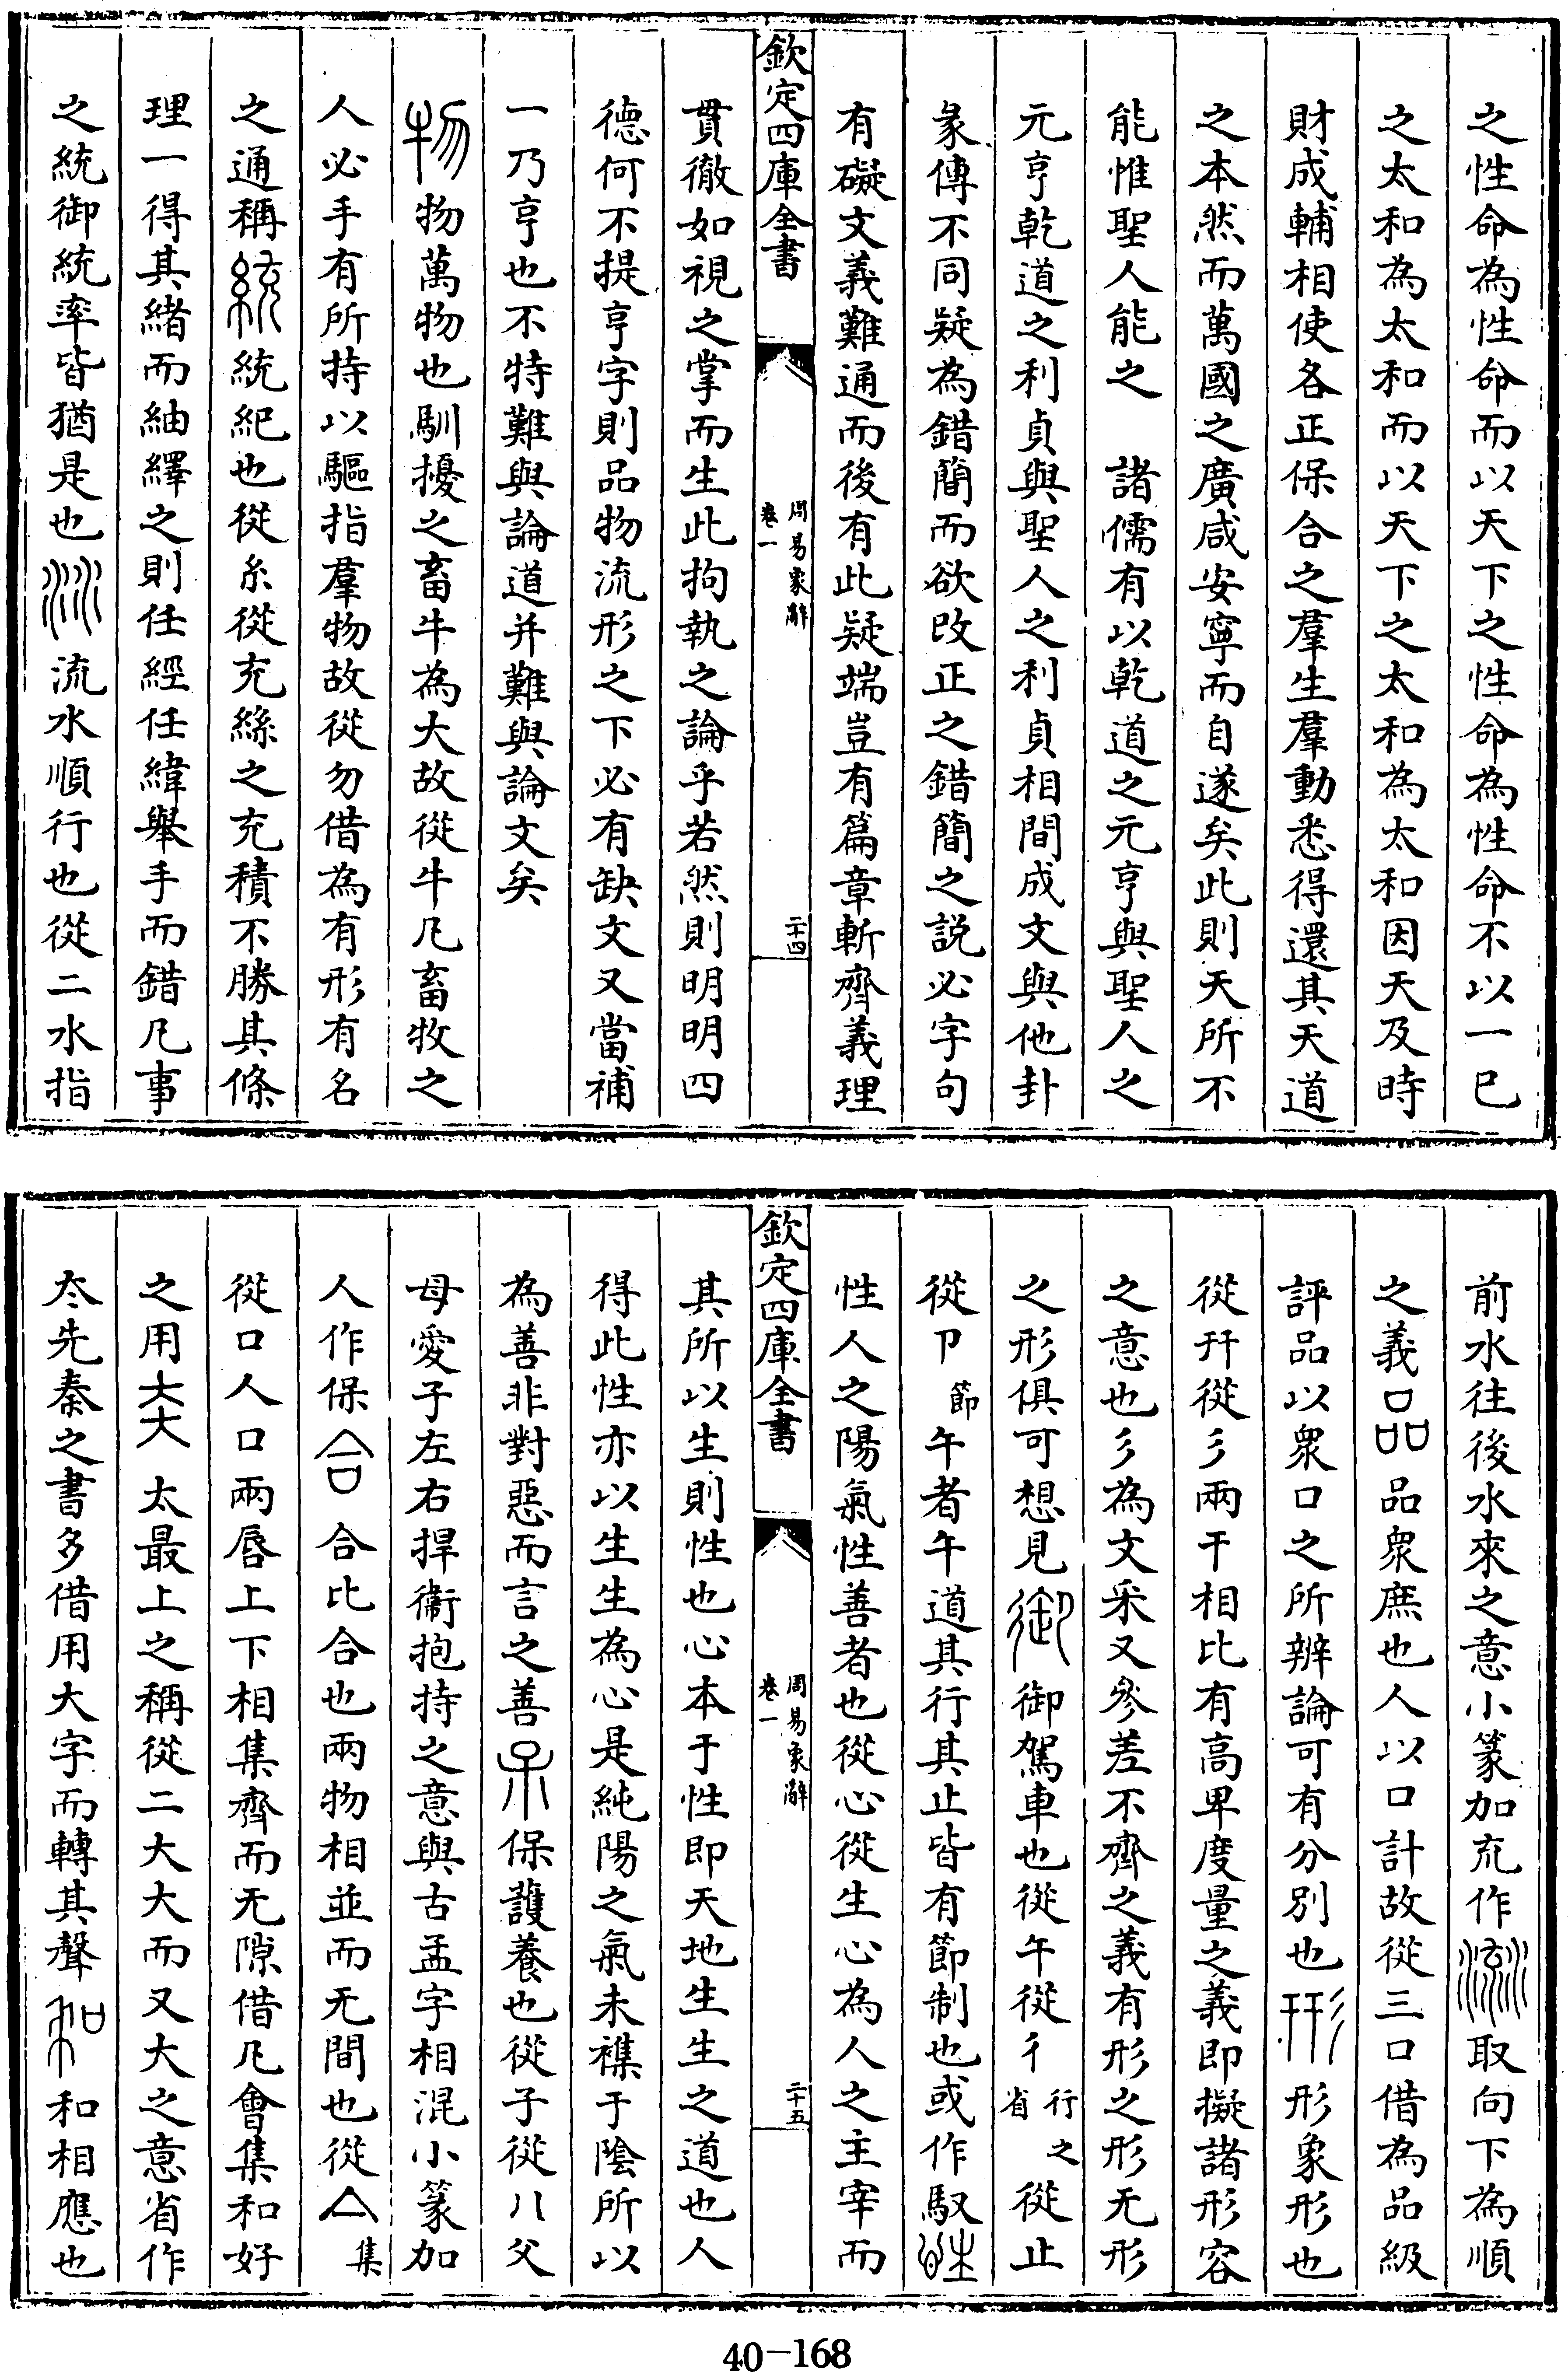 之性命為性命而以天下之性命為性命不以一己
之太和為太和而以天下之太和為太和因天及時
財成輔相使各正保合之羣生羣動悉得還其天道
之本然而萬國之廣咸安寧而自遂矣此則天所不
能惟聖人能之　諸儒有以乾道之元亨與聖人之
元亨乾道之利貞與聖人之利貞相間成文與他卦
彖傳不同疑為錯簡而欲改正之錯簡之說必字句
有礙文義難通而後有此疑端豈有篇章斬齊義理
欽定四庫全書
周易象辭
卷一
二十四
貫徹如視之掌而生此拘執之論乎若然則明明四
德何不提亨字則品物流形之下必有缺文又當補
一乃亨也不特難與論道并難與論文矣
物物萬物也馴擾之畜牛為大故從牛凡畜牧之
人必手有所持以驅指羣物故從勿借為有形有名
之通稱統統紀也從糸從充絲之充積不勝其條
理一得其緒而紬繹之則任經任緯舉手而錯凡事
之統御統率皆猶是也㳅流水順行也從二水指
前水往後水來之意小篆加㐬作流取向下為順
之義品品衆庶也人以口計故從三口借為品級
評品以衆口之所辨論可有分別也形形象形也
從幵從彡兩干相比有高卑度量之義即擬諸形容
之意也彡為文采又參差不齊之義有形之形无形
之形俱可想見御御駕車也從午從彳行之省從止
從卩節午者午道其行其止皆有節制也或作馭性
性人之陽氣性善者也從心從生心為人之主宰而
欽定四庫全書
周易象辭
卷一
二十五
其所以生則性也心本于性即天地生生之道也人
得此性亦以生生為心是純陽之氣未襍于陰所以
為善非對惡而言之善保保護養也從子從八父
母愛子左右捍衞抱持之意與古孟字相混小篆加
人作保合合比合也兩物相並而无間也從亼集
從口人口兩唇上下相集齊而无隙借凡會集和好
之用太太最上之稱從二大大而又大之意省作
夳先秦之書多借用大字而轉其聲和和相應也
40-168